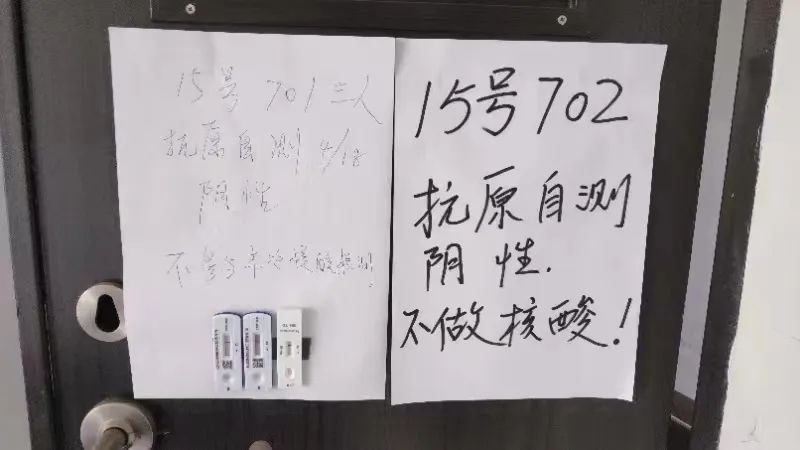 15号 701 三人
抗原自测 4/18
阴性
不参与本次核酸检测!
15号702
抗原自测
阴性.
不做核酸!